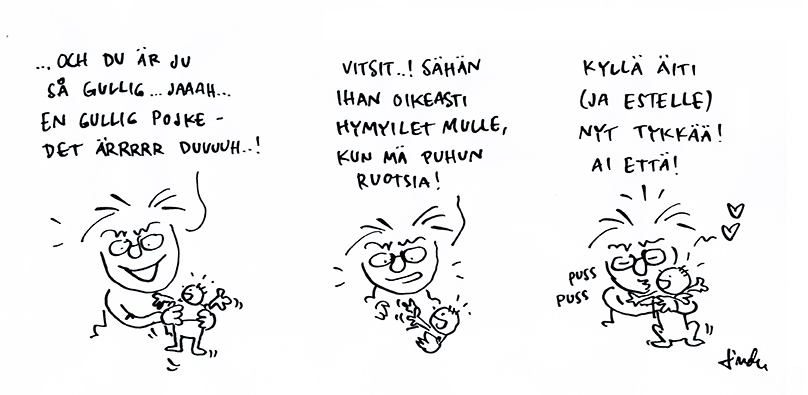 ... OCH DU ÄR JU
SÅ GULLIG ... JAAAH...
EN GULLIG POJKE -
DET ÄRRRRR DUUUUH..!
VITSIT..! SÄHÄN
IHAN OIKEASTI
HYMYILET MULLE,
KUN MÄ PUHUN
RUOTSIA!
KYLLÄ ÄITI
(JA ESTELLE)
NYT TYKKÄÄ!
AI ETTÄ!
PUSS
PUSS